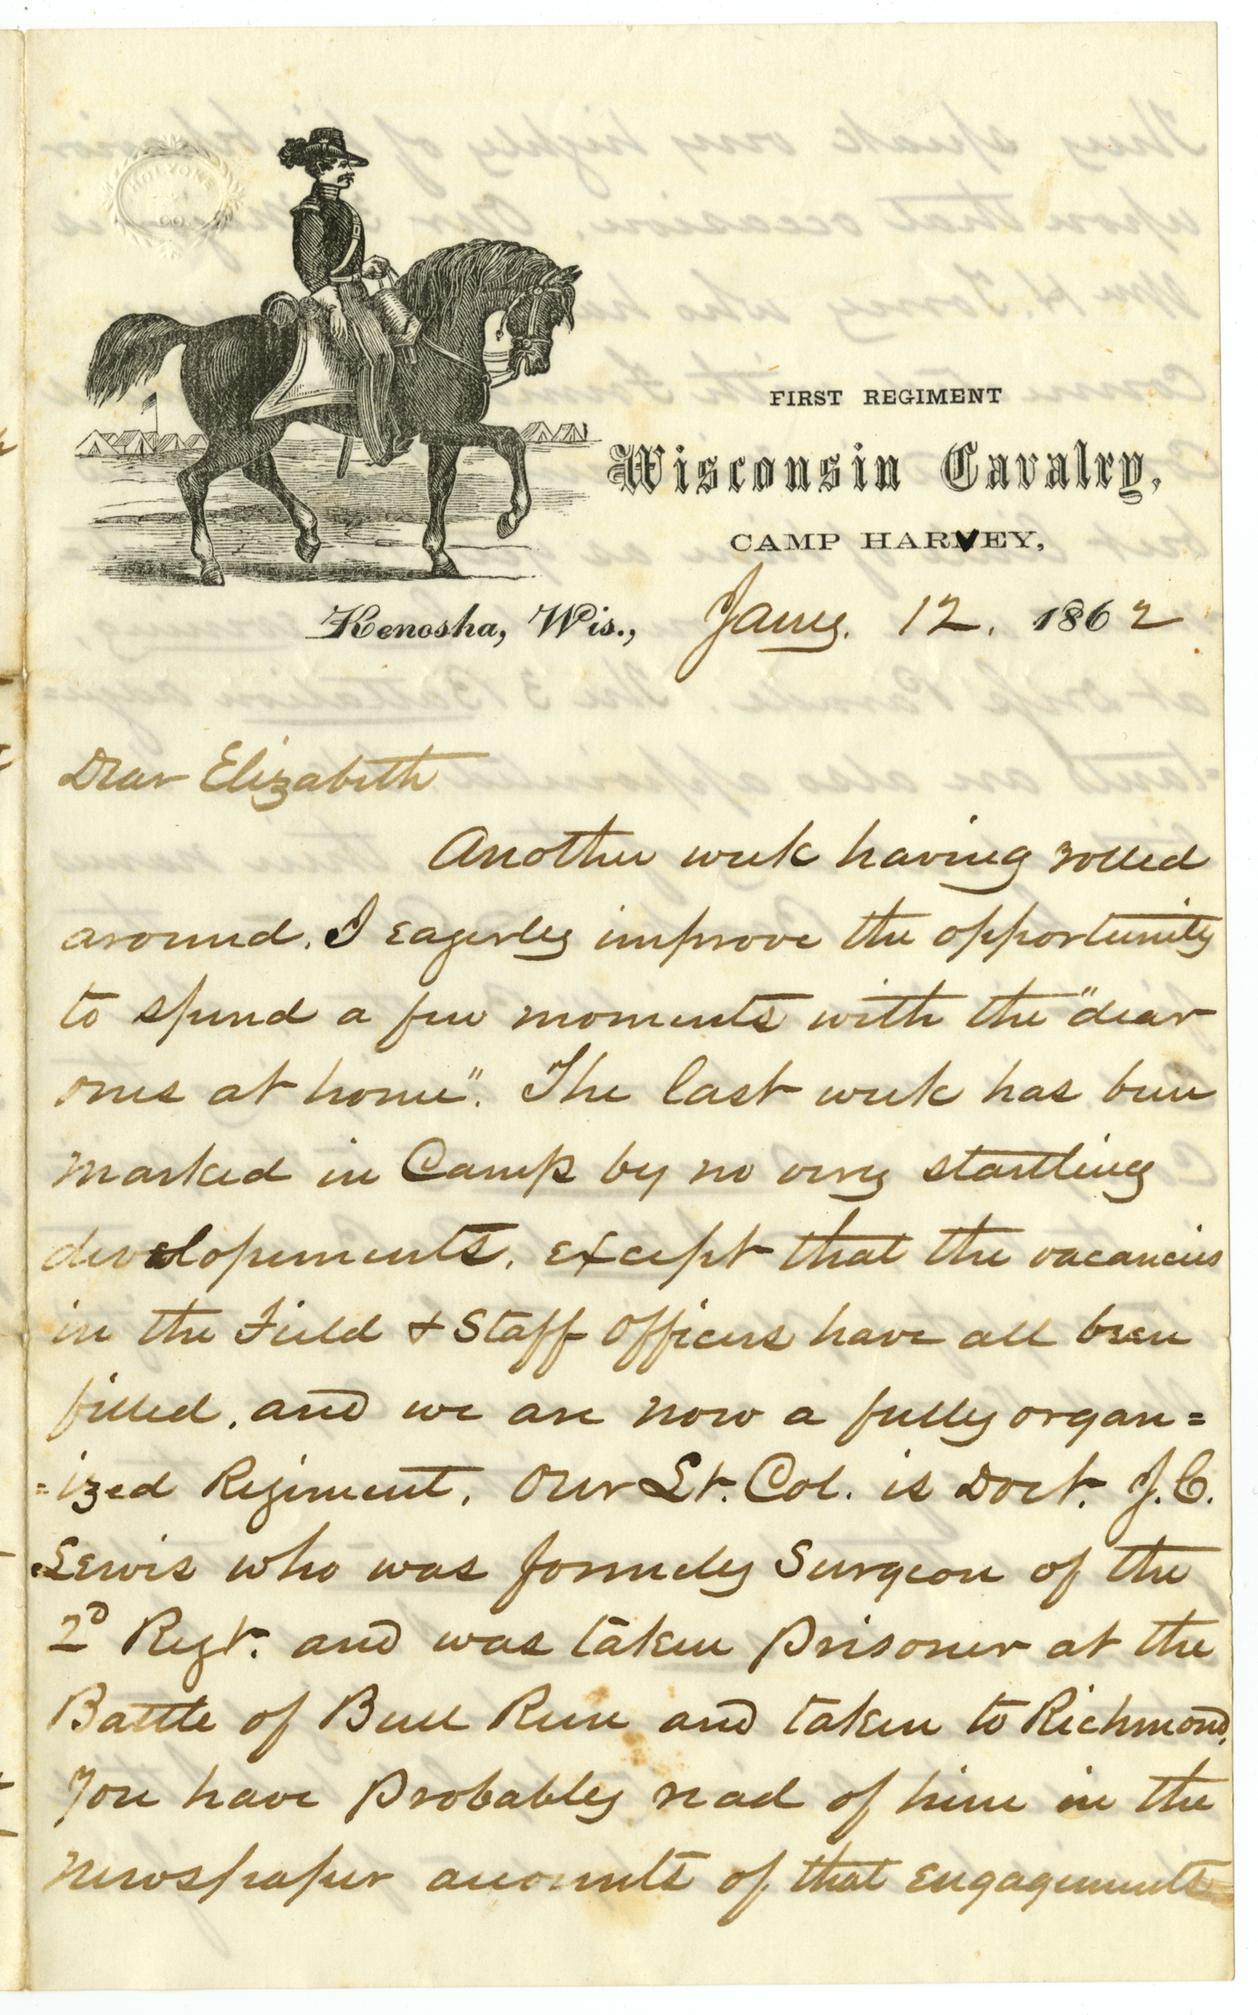 HOLYOKE
CO.
FIRST REGIMENT
Wisconsin Cavalry,
CAMP HARVEY,
Kenosha, Wis., Jany. 12. 1862
Dear Elizabeth
Another week having rolled
around. I eagerly improve the opportunity
to spend a few moments with the "dear
ones at home". The last week has been
marked in Camp by no very startling
developements, except that the vacancies
in the Field & Staff Officers have all been
filled, and we are now a fully organ=
=ized Regiment. Our Lt. Col. is Doct. J.C.
Lewis who was formely Surgeon of the
2D Regt. and was taken Prisoner at the
Battle of Bull Run and taken to Richmond.
You have Probably read of him in the
newspaper accounts of that Engagements